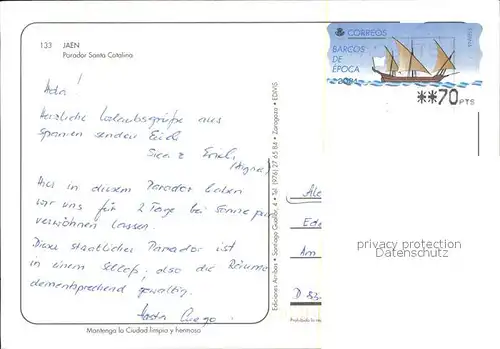 133 JAEN
Parador Santa Catalina
Hola!
Herzliche Urlaubsgrüße aus
Spanien senden Euch
Erich
Aus in diesem Parador haben
wir uns für 2 Tage bei Sonne pur
verwöhnen lassen.
Dieser staatlicher Parador ist
in einem Schloß, also die Räume
dementsprechend gewaltig.
Hasta luego.
Mantenga la Ciudad limpia y hermosa
Ediciones Arribas • Santiago Guallar, 4 • Tel. (976) 27 65 84 • Zaragoza • EDIVIS
CORREOS
ESPAÑA
BARCOS
DE
EPOCA
**70 PTS
Ale
Ede
Am
privacy protection
Datenschutz
D
Prohibida la re